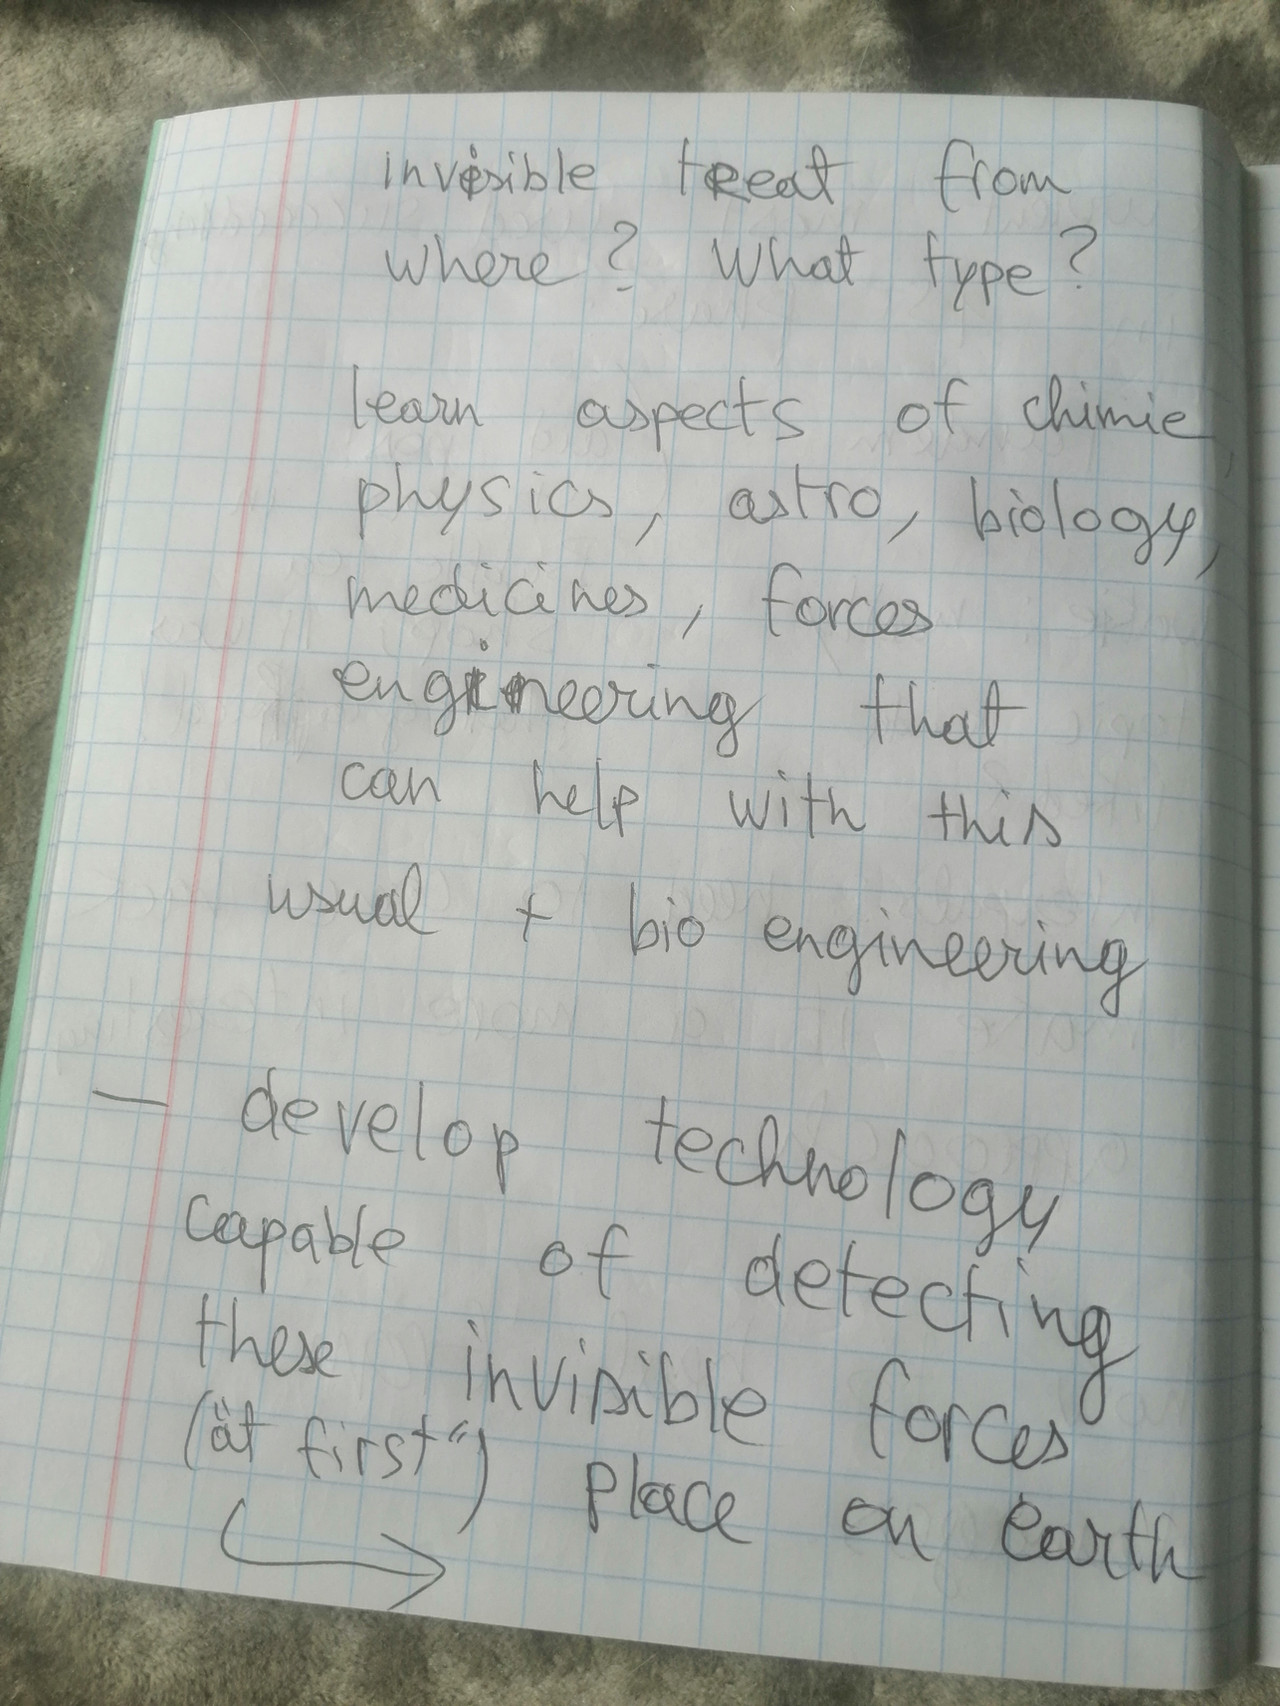 invisible treat from
where? What type?
learn aspects of chimie,
physics, astro, biology,
medicines, forces
engineering that
can help with this
usual + bio engineering
— develop technology
capable of detecting
these invisible forces
("at first") place on earth